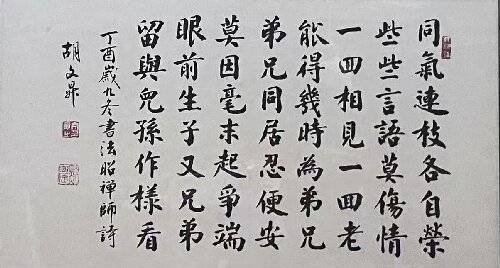 同氣連枝各自榮
些些言語莫傷情
一回相見一回老
能得幾時為弟兄
弟兄同居忍便安
莫因毫末起爭端
眼前生子又兄弟
留與兒孫作樣看
丁酉歲九冬書法昭禪師詩
胡文